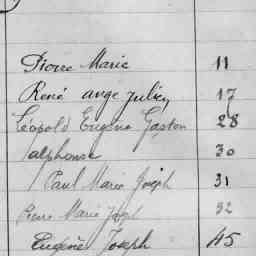 Pierre Marie 11
René ange julien 17
Léopold Eugène Gaston 28
alphonse 30
Paul Marie Joseph 31
Pierre Marie Josph 32
Eugène Joseph 45